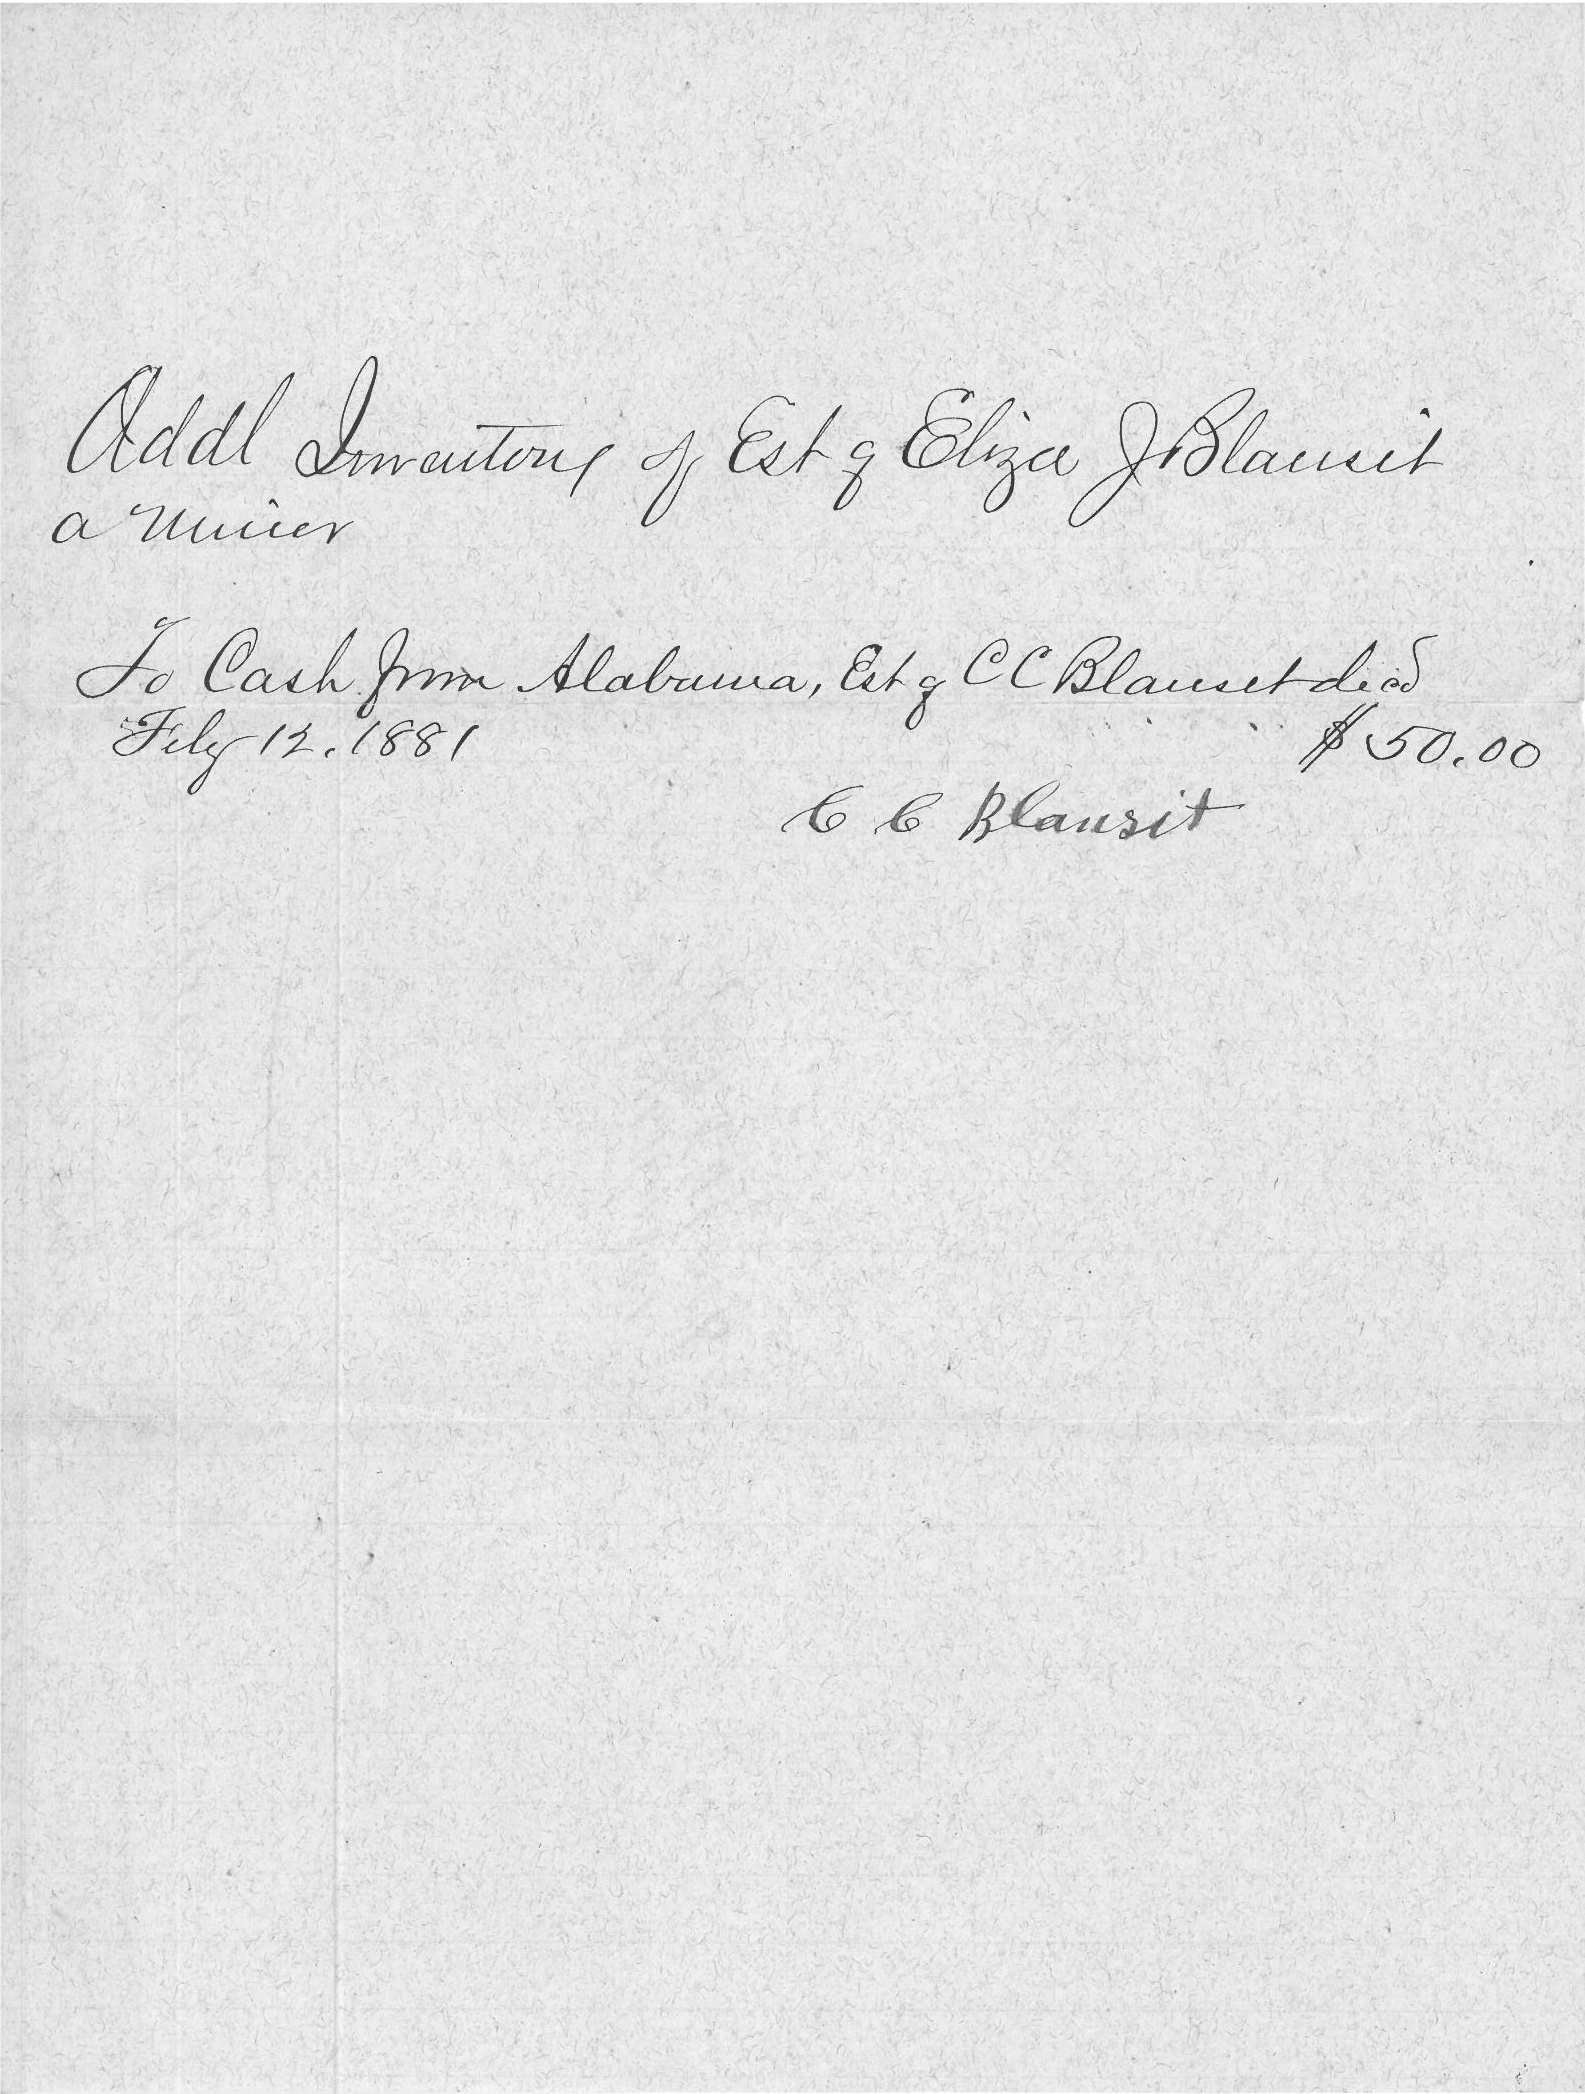 Addl Inventory of Est of Eliza J Blansit
a Minor
To Cash from Alabama, Est of C C Blanset decd
Feby 12, 1881 $50.00
C C Blansit